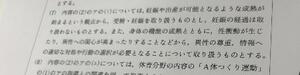 とする。
(7) 内容の(2)のアの(ｲ)については，妊娠や出産が可能となるような成熟が
始まるという観点から，受精・妊娠を取り扱うものとし，妊娠の経過は取
り扱わないものとする。また，身体の機能の成熟とともに，性衝動が生じ
たり，異性への関心が高まったりすることなどから，異性の尊重，情報へ
の適切な対処や行動の選択が必要となることについて取り扱うものとする。
(8) 内容の(2)のアの(ｴ)については，体育分野の内容の「A体つくり運動」